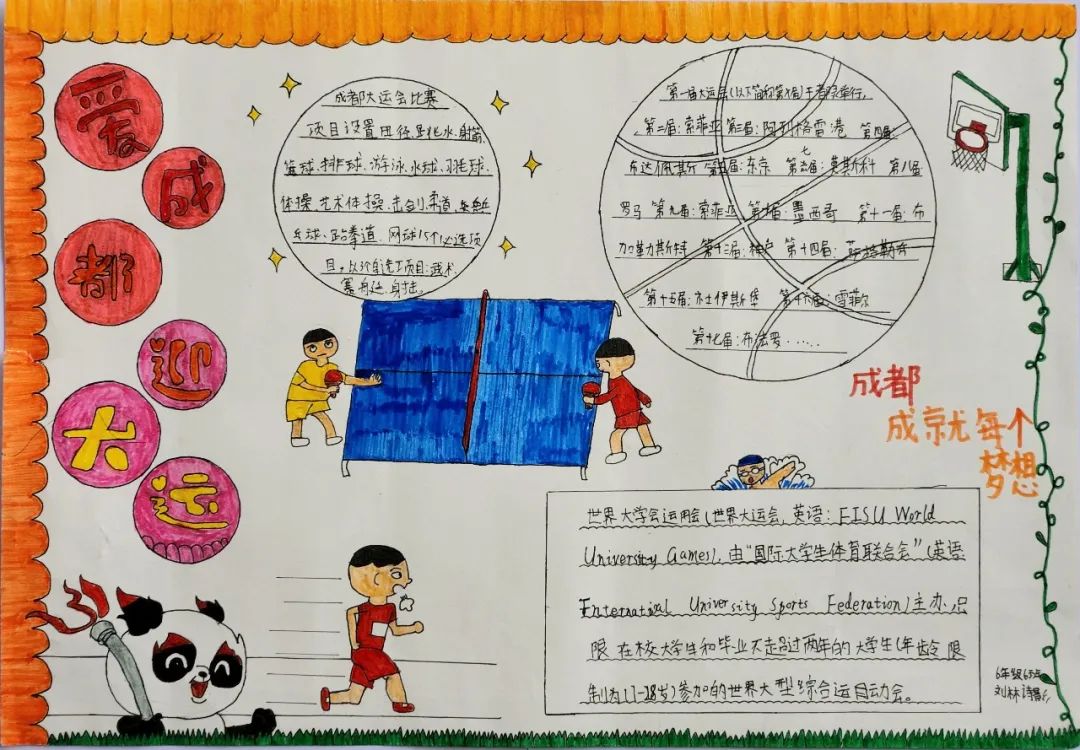 爱
成
都
迎
大
运
成都大运会比赛
项目设置田径、跳水、射箭、
篮球、排球、游泳、水球、羽毛球、
体操、艺术体操、击剑、柔道、乒乓
乓球、跆拳道、网球15个必选项
目,以3个自选项目:武术、
赛舟廷、射击。
第一届大运会(以下简称第X届)于都灵举行,
第二届:索菲亚 第三届:阿列格雷港 第四届:
布达佩斯 第五届:东京 第七届:莫斯科 第八届
罗马 第九届:索菲亚 第十届:墨西哥 第十一届:布
加勒斯特 第十三届:神户 第十四届:萨格勒布
第十五届: 第十六届:雪菲尔
第十七届:布法罗......
成都
成就每个
梦想
世界大学会运用会(世界大运会,英语:FISU World
University Games),由“国际大学生体育联合会”(英语:
Enternatival University Sports Federation)主办,只
限在校大学生和毕业不走超过两年的大学生(年龄限
制为11-28岁)参加的世界大型综合运自动会。
6年级
刘林诗